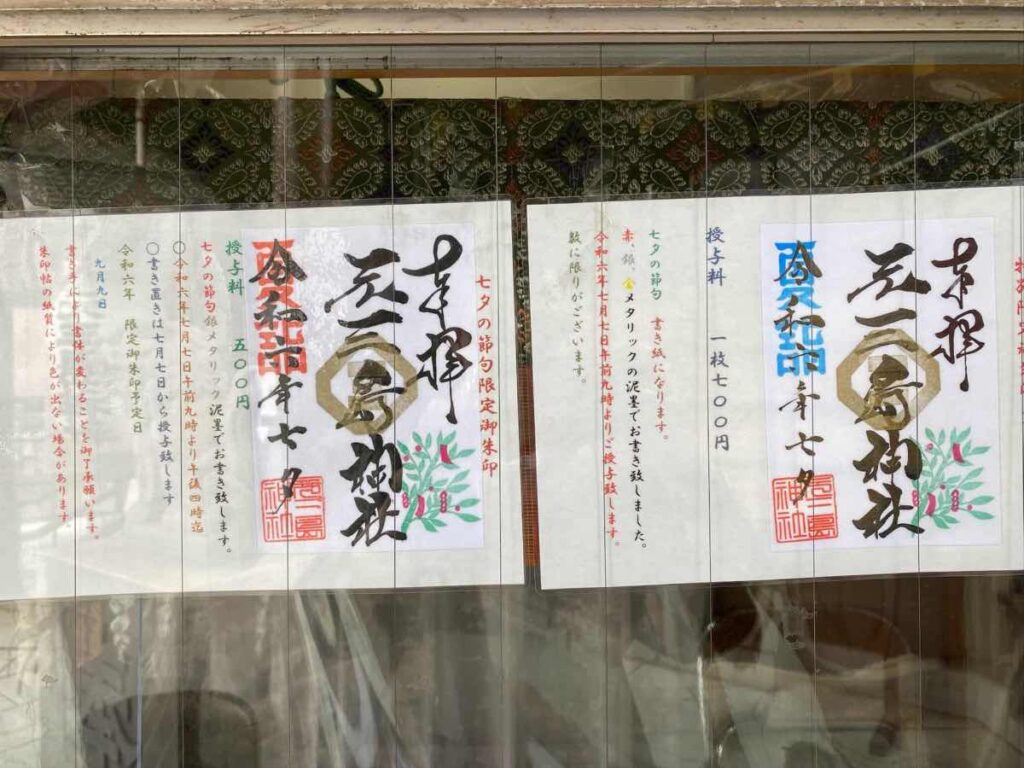 奉拝
元三島神社
夏詣
令和六年七夕
元三島
神社
授与料　一枚七〇〇円
七夕の節句　書き紙になります。
赤、銀、金メタリックの泥墨でお書き致しました。
令和六年七月七日午前九時よりご授与致します。
数に限りがございます。
七夕の節句限定御朱印
奉拝
元三島神社
夏詣
令和六年七夕
元三島
神社
授与料　五〇〇円
七夕の節句銀メタリック泥墨でお書き致します。
〇令和六年七月七日午前九時より午後四時迄
〇書き置きは七月七日から授与致します
令和六年　限定御朱印予定日
九月九日
書き手により書体が変わることを御了承願います。
朱印帖の紙質により色が出ない場合があります。